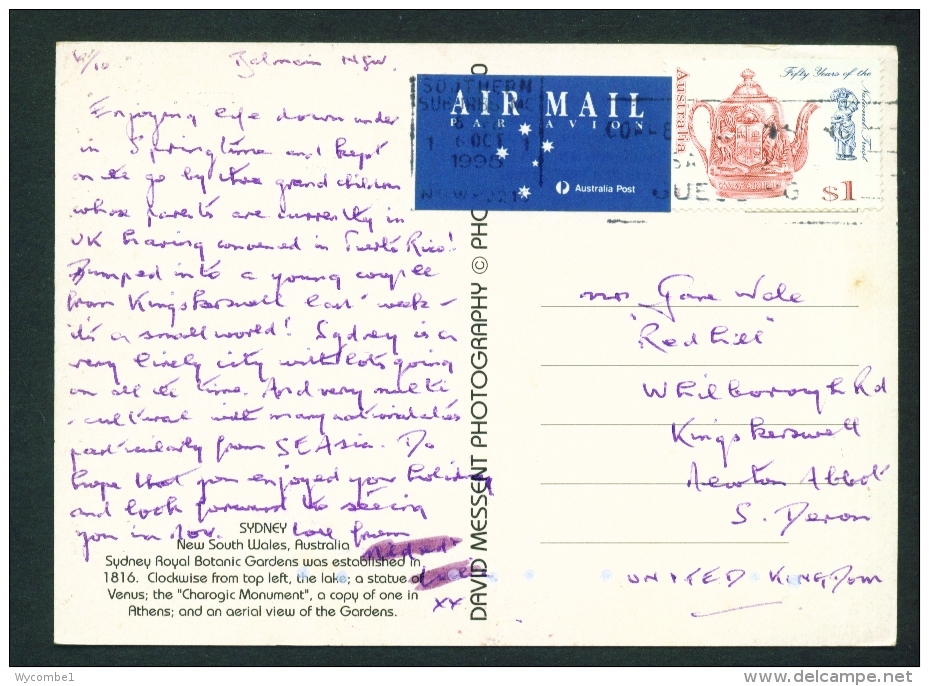 6/10 Balmain NSW.
Enjoying life down under
in Springtime and kept
on the go by three grand children
whose parents are currently in
UK having convened in Puerto Rico!
Bumped into a young couple
from Kingskerswell last week -
it's a small world! Sydney is a
very lively city with lots going
on all the time. And very multi
-cultural with many nationalities
particularly from SE Asia. Do
hope that you enjoyed your holiday
and look forward to seeing
you in Nov. Love from
xx
SYDNEY
New South Wales, Australia
Sydney Royal Botanic Gardens was established in
1816. Clockwise from top left, the lake; a statue of
Venus; the "Charogic Monument", a copy of one in
Athens; and an aerial view of the Gardens.
DAVID MESSENT PHOTOGRAPHY © PHO
SOUTHERN
6 OCT
1995
AIR MAIL
PAR AVION
Australia Post
Australia
Fifty Years of the
National Trust
$1
Mrs Wale
"Red hill"
Whilborough Rd
Kingskerswell
Newton Abbot
S. Devon
UNITED KINGDOM
Wycombe1
delcampe.net